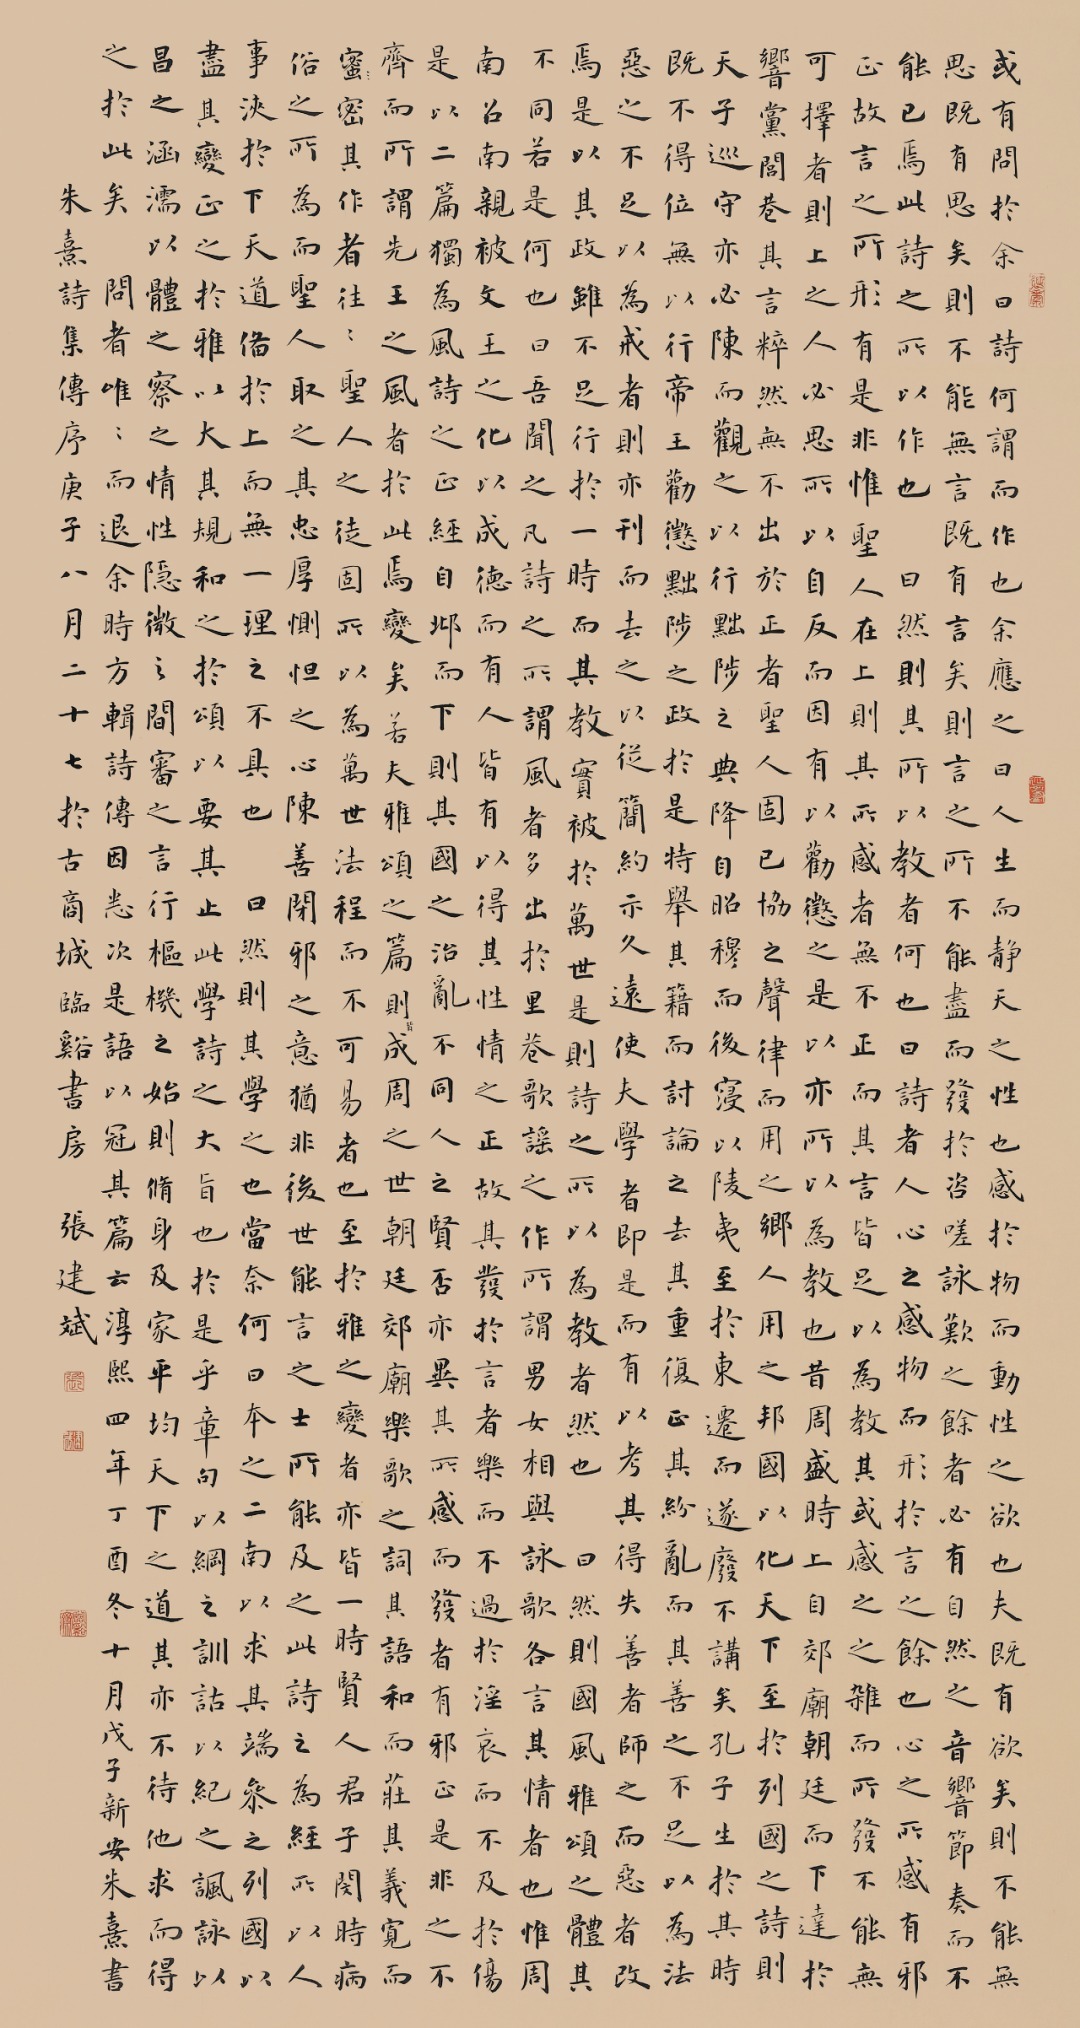 或有問於余曰詩何謂而作也余應之曰人生而静天之性也感於物而動性之欲也夫既有欲矣則不能無
思既有思矣則不能無言既有言矣則言之所不能盡而發於咨嗟詠歎之餘者必有自然之音響節奏而不
能已焉此詩之所以作也曰然則其所以教者何也曰詩者人心之感物而形於言之餘也心之所感有邪
正故言之所形有是非惟聖人在上則其所感者無不正而其言皆足以為教其或感之之雜而所發不能無
可擇者則上之人必思所以自反而因有以勸懲之是以亦所以為教也昔周盛時上自郊廟朝廷而下達於
響黨閭巷其言粹然無不出於正者聖人固已協之聲律而用之鄉人用之邦國以化天下至於列國之詩則
天子巡守亦必陳而觀之以行黜陟之典降自昭穆而後寖以陵夷至於東遷而遂廢不講矣孔子生於其時
既不得位無以行帝王勸懲黜陟之政於是特舉其籍而討論之去其重復正其紛亂而其善之不足以為法
惡之不足以為戒者則亦刊而去之以從簡約示久遠使夫學者即是而有以考其得失善者師之而惡者改
焉是以其政雖不足行於一時而其教實被於萬世是則詩之所以為教者然也曰然則國風雅頌之體其
不同若是何也曰吾聞之凡詩之所謂風者多出於里巷歌謠之作所謂男女相與詠歌各言其情者也惟周
南召南親被文王之化以成德而有人皆有以得其性情之正故其發於言者樂而不過於淫哀而不及於傷
是以二篇獨為風詩之正經自邶而下則其國之治亂不同人之賢否亦異其所感而發者有邪正是非之不
齊而所謂先王之風者於此焉變矣若夫雅頌之篇則皆成周之世朝廷郊廟樂歌之詞其語和而莊其義寬而
蜜密其作者往〻聖人之徒固所以為萬世法程而不可易者也至於雅之變者亦皆一時賢人君子閔時病
俗之所為而聖人取之其忠厚惻怛之心陳善閉邪之意猶非後世能言之士所能及之此詩之為經所以人
事浹於下天道備於上而無一理之不具也曰然則其學之也當奈何曰本之二南以求其端參之列國以
盡其變正之於雅以大其規和之於頌以要其止此學詩之大旨也於是乎章句以綱之訓詁以紀之諷詠以
昌之涵濡以體之察之情性隱微之間審之言行樞機之始則脩身及家平均天下之道其亦不待他求而得
之於此矣問者唯〻而退余時方輯詩傳因悉次是語以冠其篇云淳熙四年丁酉冬十月戊子新安朱熹書
朱熹詩集傳序庚子八月二十七於古商城臨谿書房張建斌